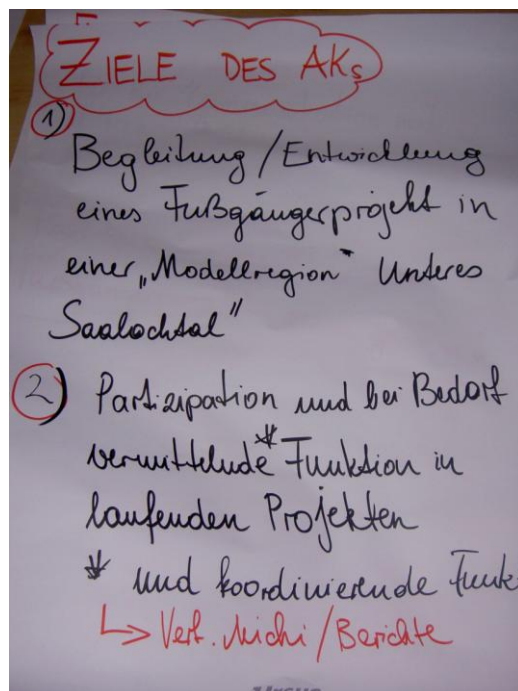 ZIELE DES AKs
1)
Begleitung / Entwicklung
eines Fußgängerprojekt in
einer „Modellregion" Unteres
Saalachtal"
2) Partizipation und bei Bedarf
vermittelnde * Funktion in
laufenden Projekten
* und koordinierende Funk
↳ Vert. Michi / Berichte